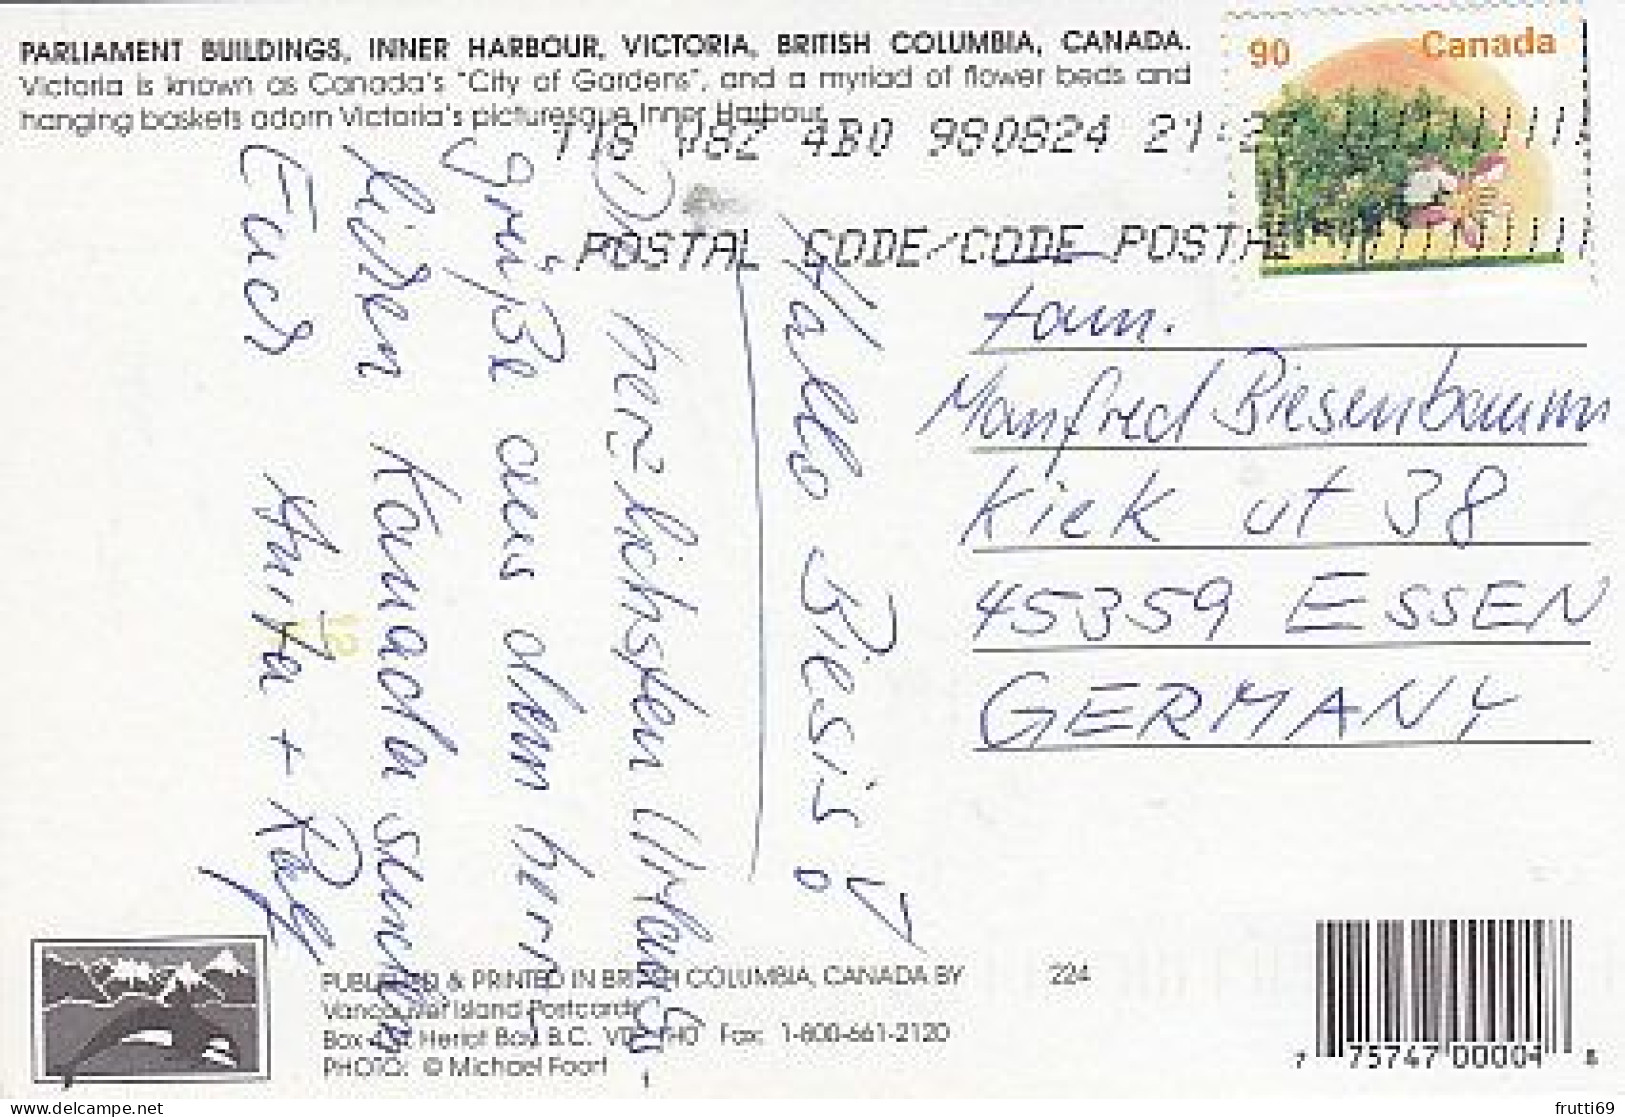 PARLIAMENT BUILDINGS, INNER HARBOUR, VICTORIA, BRITISH COLUMBIA, CANADA.
Victoria is known as Canada's "City of Gardens", and a myriad of flower beds and
hanging baskets adorn Victoria's picturesque Inner Harbour.
90 Canada
V8Z 4B0 980824 21:2
POSTAL CODE/CODE POSTA
Hallo Biesis!
herzlichsten Urlaubs-
grüße aus dem herr
lichen Kanada senden
Euch Anita + Rolf
Fam.
Manfred Biesenbaum
Kiek ut 38
45359 ESSEN
GERMANY
PUBLISHED & PRINTED IN BRITISH COLUMBIA, CANADA BY
224
Vancouver Island Postcards
Box Heriot Bay, B.C. Fax: 1-800-661-2120
PHOTO: © Michael Foort
7 75747 00004 8
frutti69
delcampe.net